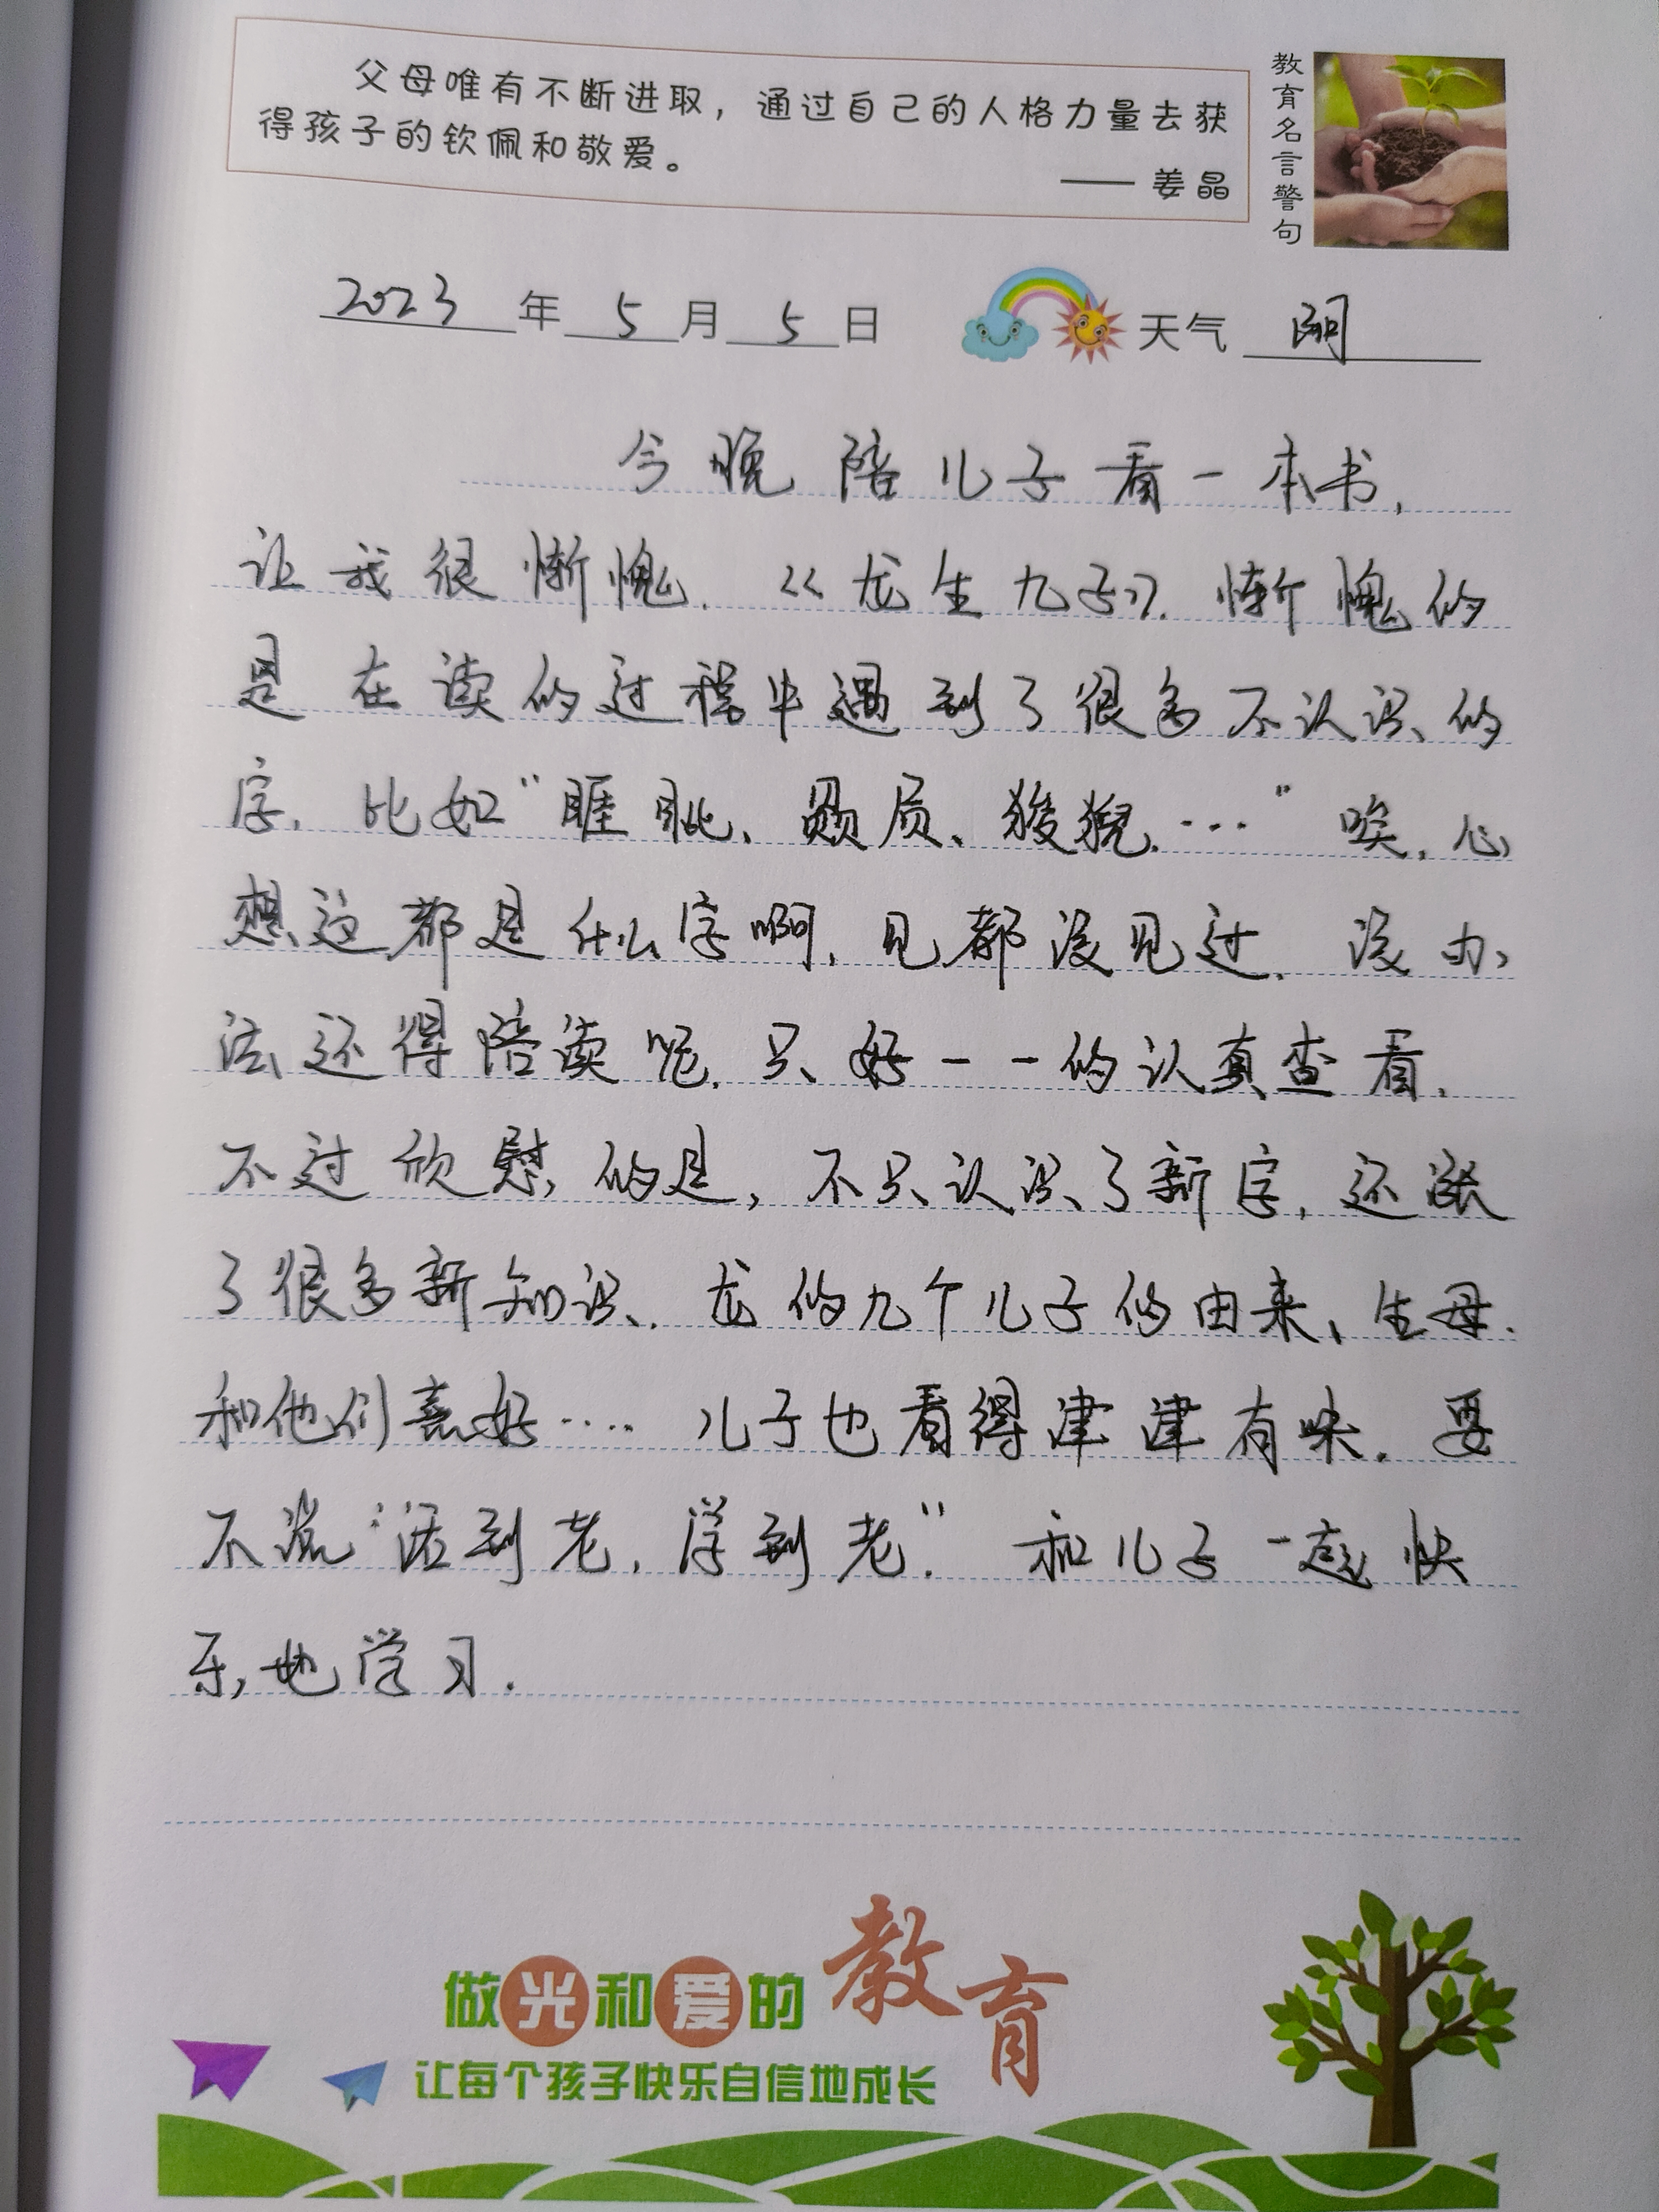 父母唯有不断进取，通过自己的人格力量去获
得孩子的钦佩和敬爱。
—— 姜晶
教育名言警句
2023年5月5日 天气
今晚陪儿子看一本书,
让我很惭愧.《龙生九子》.惭愧的
是在读的过程中遇到了很多不认识的
字.比如“睚眦、赑屃、狻猊.…”唉,心
想这都是什么字啊,见都没见过.没办
法,还得陪读呢.只好一一的认真查看.
不过欣慰的是,不只认识了新字,还涨
了很多新知识.龙的九个儿子的由来、生母.
和他们喜好….儿子也看得津津有味.要
不说“活到老,学到老.”和儿子一起快
乐地学习.
做光和爱的教育
让每个孩子快乐自信地成长